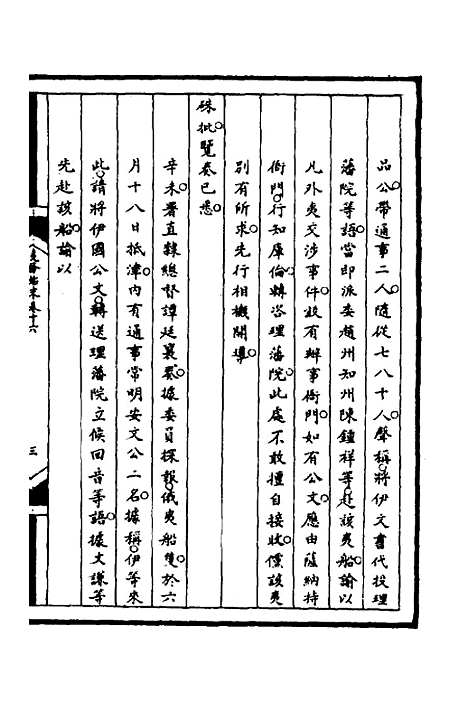 品公帶通事二人隨從七八十人聲稱將伊文書代投理
藩院等語當即派委趙州知州陳鍾祥等赴該夷船諭以
凡外夷交涉事件設有辦事衙門如有公文應由薩納特
衙門行知庫倫轉咨理藩院此處不敢擅自接收儻該夷
別有所求先行相機開導
硃批覽奏已悉
辛未署直隸總督譚廷襄奏據委員探報俄夷船隻於六
月十八日抵津內有通事常明安文公二名據稱伊等來
此請將伊國公文轉送理藩院立候回音等語據文謙等
先赴該船諭以
夷務始末卷十六
三